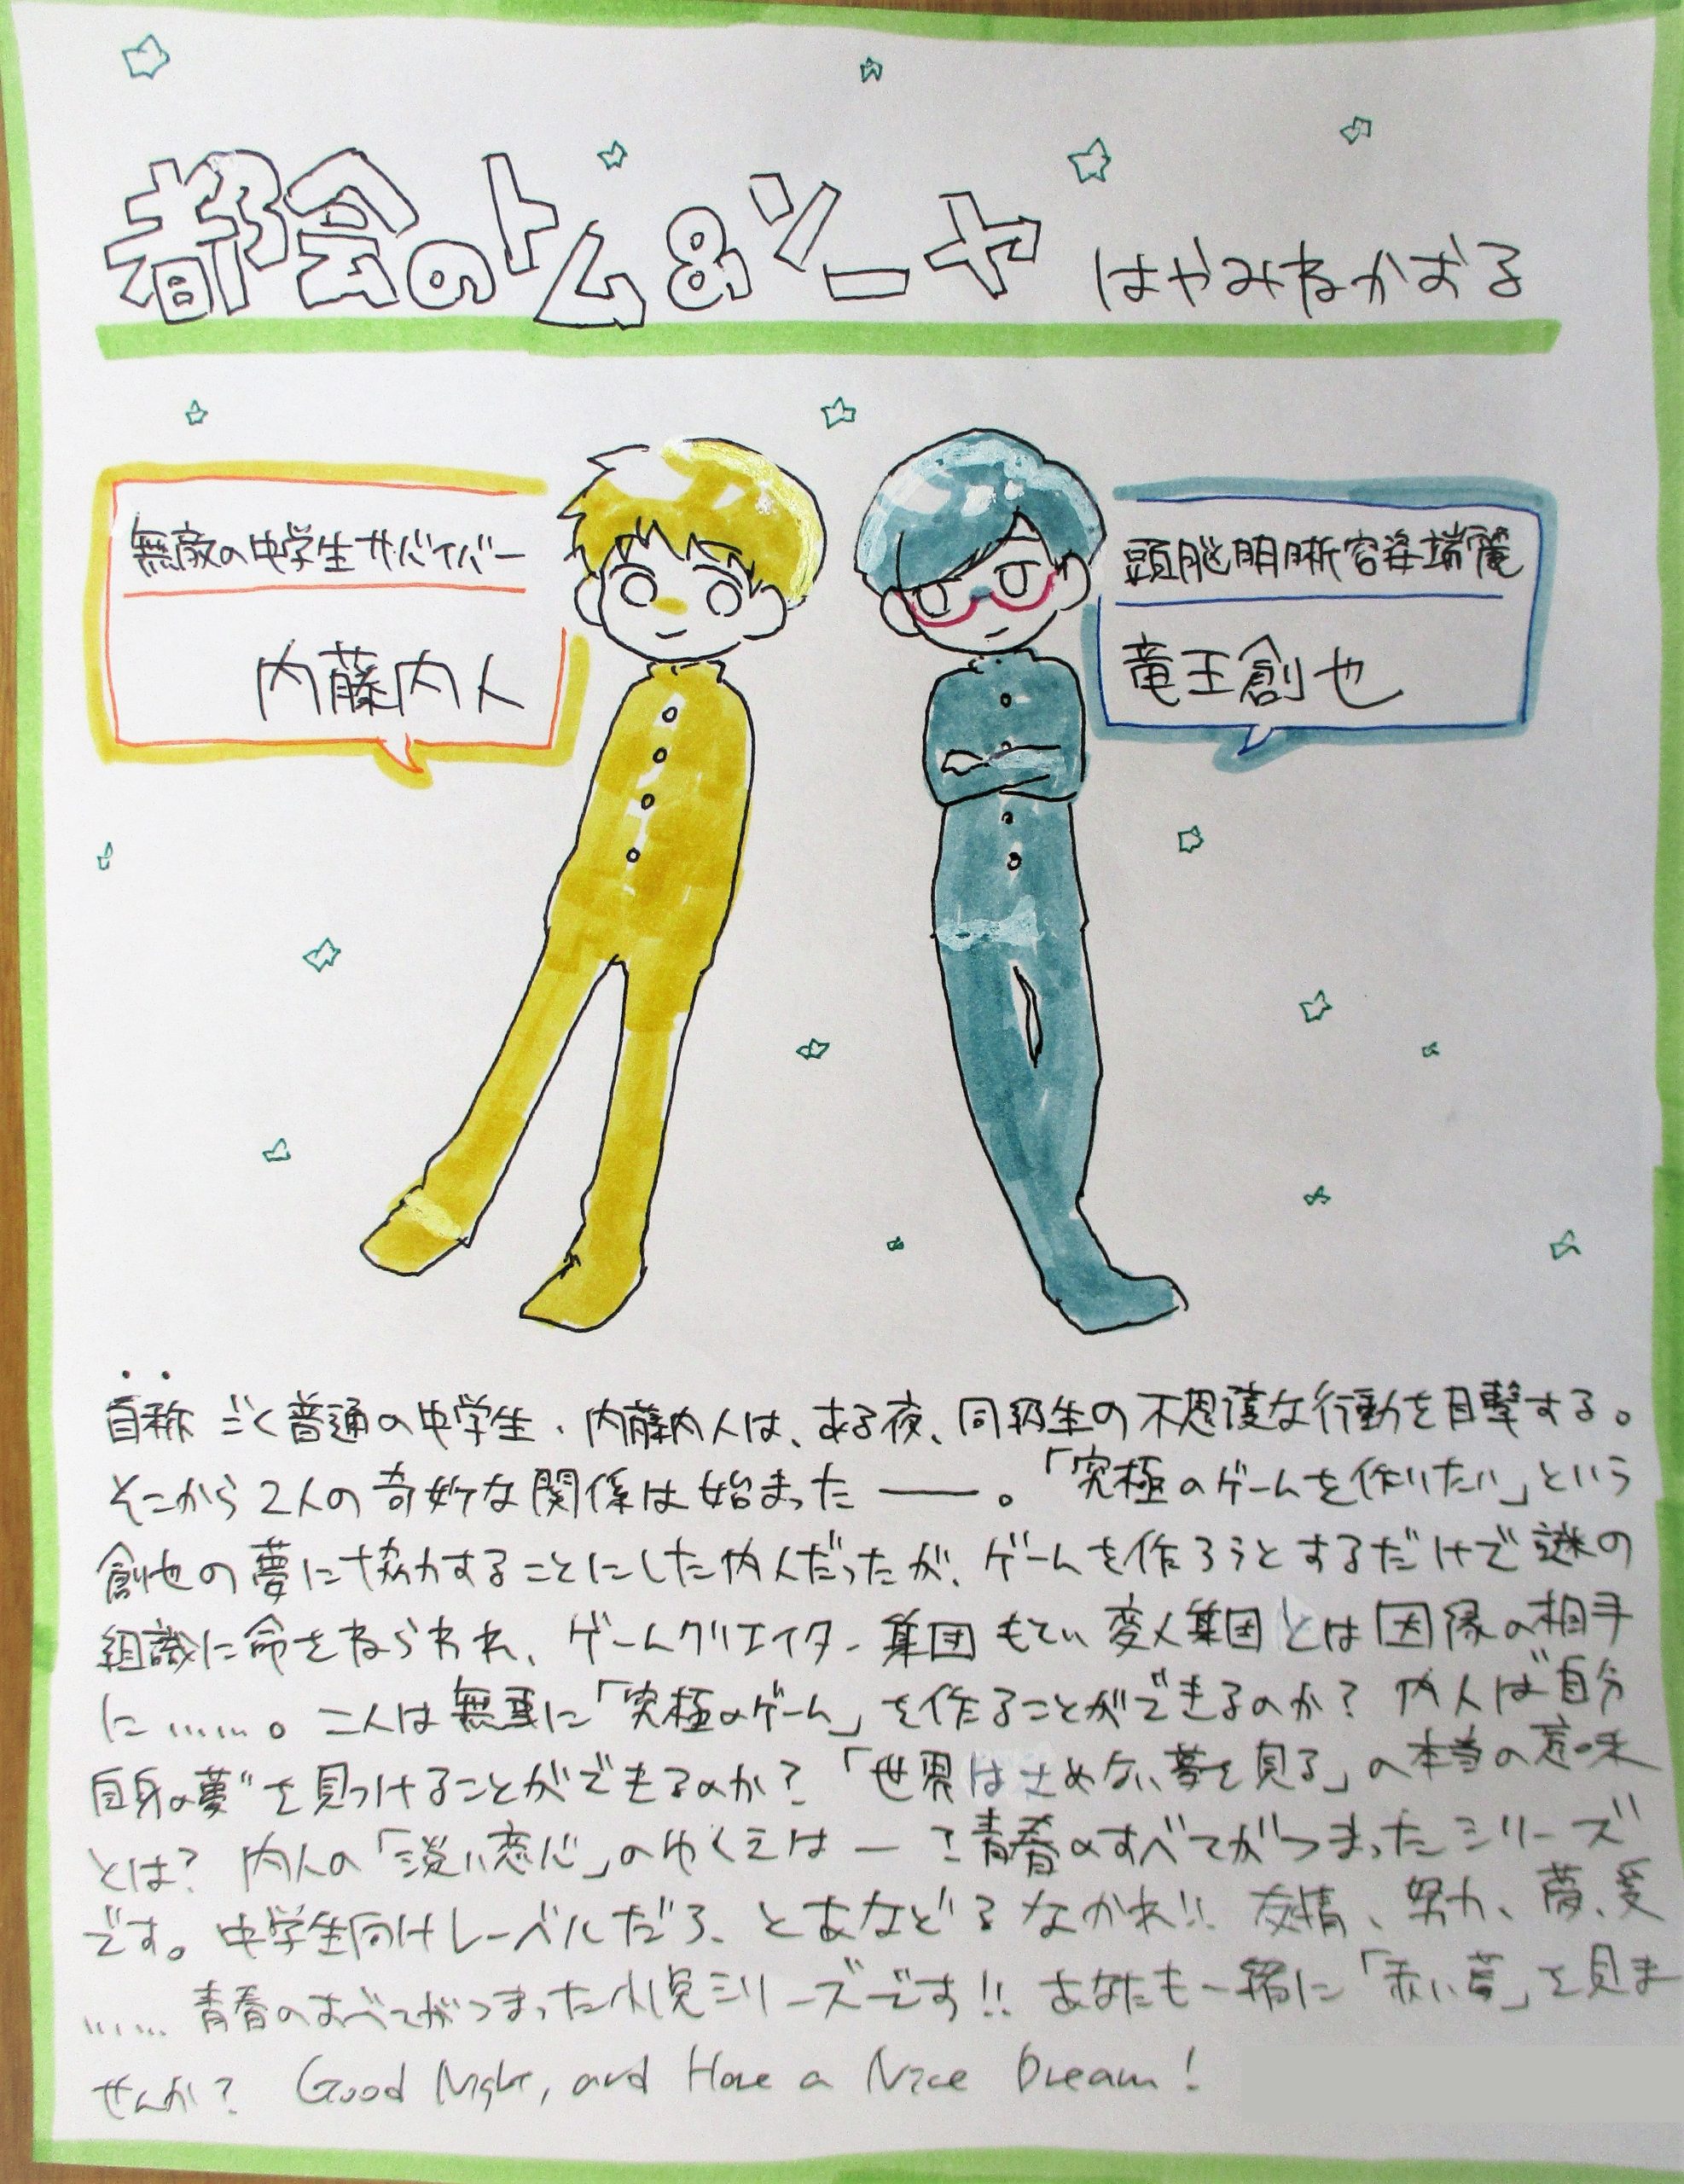 都会のトム&ソーヤ はやみねかおる
無敵の中学生サバイバー
内藤内人
頭脳明晰容姿端麗
竜王創也
自称 ごく普通の中学生・内藤内人は、ある夜、同級生の不思議な行動を目撃する。
そこから2人の奇妙な関係は始まった――。「究極のゲームを作りたい」という
創也の夢に協力することにした内人だったが、ゲームを作ろうとするだけで謎の
組織に命をねらわれ、ゲームクリエイター集団もとい変人集団とは因縁の相手
に……。二人は無事に「究極のゲーム」を作ることができるのか? 内人は"自分
自身の夢"を見つけることができるのか?「世界はさめない夢を見る」の本当の意味
とは? 内人の「淡い恋心」のゆくえは―?青春のすべてがつまったシリーズ
です。中学生向けレーベルだろ、とあなどるなかれ!! 友情、努力、夢、愛
…… 青春のすべてがつまった小説シリーズです!! あなたも一緒に「赤い夢」を見ま
せんか? Good Night, and Have a Nice Dream!